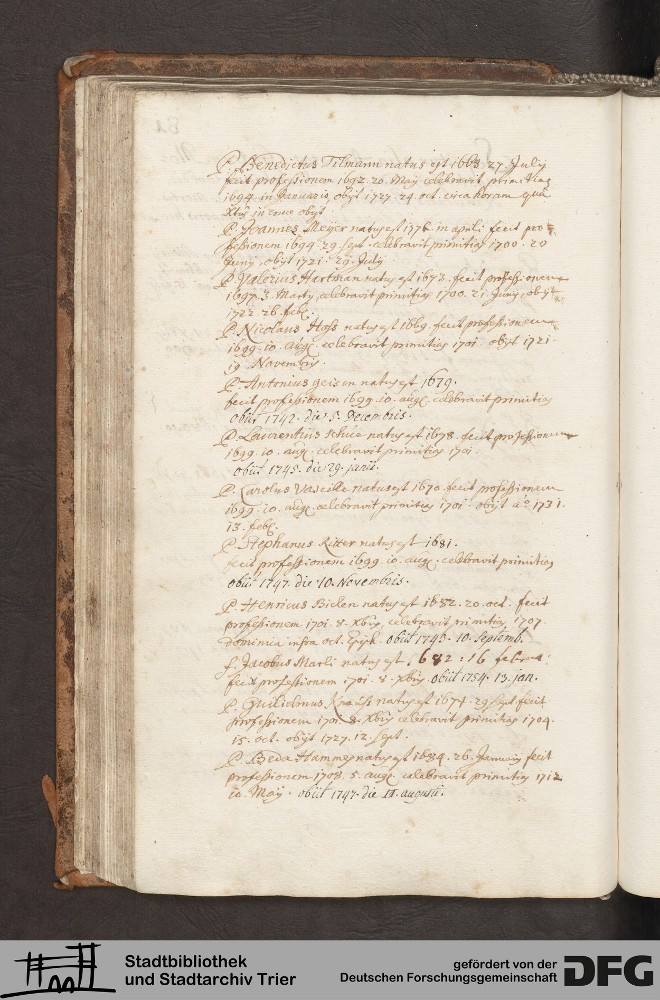 P. Benedictus Tilmann natus est 1668. 27. July
fecit professionem 1692. 20. Maÿ celebravit primitias
1694. in Januario, obÿt 1727. 24. oct. circa horam
in choro obÿt
P. Joannes Meÿer natus est 1776. in aprili fecit pro=
fessionem 1694. 29. sept. celebravit primitias 1700. 20
Junÿ, obÿt 1721. 29. Julÿ
P. Valerius Hartman natus est 1673. fecit professionem
1697. 3. Martÿ, celebravit primitias 1700. 21. Junÿ, obÿt
1722. 26. feb.
P. Nicolaus Hoss natus est 1669. fecit professionem
1699. 10. aug. celebravit primitias 1701. obÿt 1721.
19. Novembris.
P. Antonius geizen natus est 1679.
fecit professionem 1699. 10. aug. celebravit primitias
obiit 1742. die 5. Decembris.
P. Laurentius schüe natus est 1678. fecit professionem
1699. 10. aug. celebravit primitias 1701.
obiit 1745. die 29. janii.
P. Carolus Vaseille natus est 1670. fecit professionem
1699. 10. aug. celebravit primitias 1701. obÿt aº 1731.
13. feb.
P. Stephanus Ritter natus est 1681.
fecit professionem 1699. 10. aug. celebravit primitias
obiit 1747. die 10. Novembris.
P. Henricus Bicken natus est 1682. 20. oct. fecit
professionem 1701. 8. Xbris, celebravit primitias 1707.
dominica infra oct. Epiph. obiit 1745. 10. Septemb.
f. Jacobus Marli natus est 1682 : 16 februa:
fecit professionem 1701. 8. Xbris. obiit 1754. 13. jan.
P. Guilielmus Knauss natus est 1674. 29 sept fecit
professionem 1701. 8. Xbris celebravit primitias 1704.
15. oct. obÿt 1727. 12. sept.
P. Beda Hammes natus est 1684. 26. Januarÿ fecit
professionem 1708. 5. aug. celebravit primitias 1712
10. Maÿ. obiit 1747. die 11. augusti.
Stadtbibliothek
und Stadtarchiv Trier
gefördert von der
Deutschen Forschungsgemeinschaft
DFG